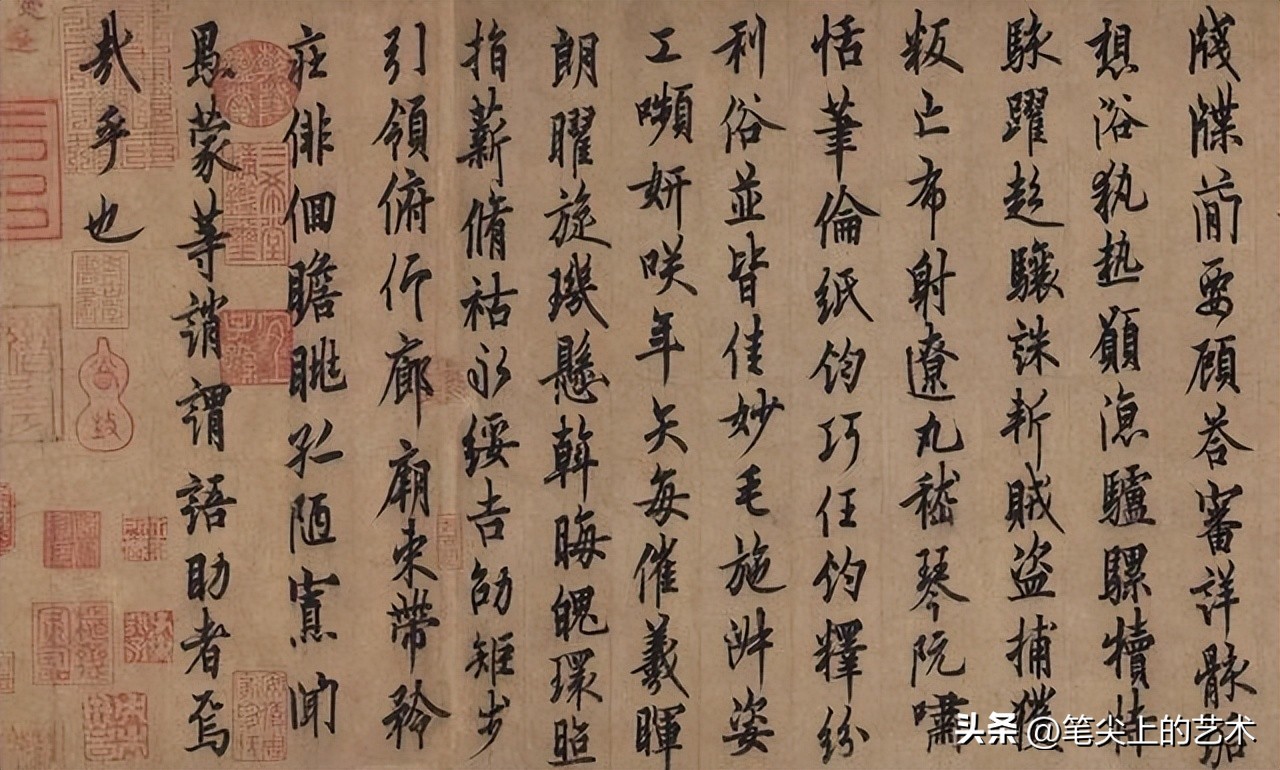 牋牒簡要顧荅審詳骸垢
想浴執熱願涼驢騾犢特
駭躍超驤誅斬賊盜捕獲
叛亡布射遼丸嵇琴阮嘯
恬筆倫紙鈞巧任釣釋紛
利俗並皆佳妙毛施淑姿
工嚬妍咲年矢每催羲暉
朗曜旋璣懸斡晦魄環照
指薪脩祜永綏吉劭矩步
引領俯仰廊廟束帶矜
莊徘徊瞻眺孤陋寡聞
愚蒙等誚謂語助者焉
哉乎也
头条 @笔尖上的艺术